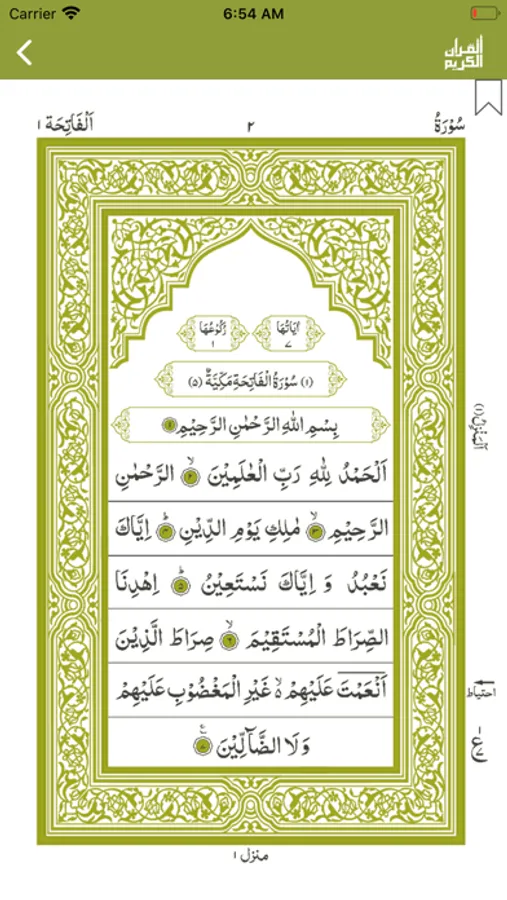 Carrier 6:54 AM
القرآن الكريم
سُوْرَةُ ٢ اَلْفَاتِحَة ١
اٰيَاتُهَا ٧
رُكُوْعُهَا ١
(١) سُوْرَةُ الْفَاتِحَةِ مَكِّيَّةٌ (٥)
بِسْمِ اللّٰهِ الرَّحْمٰنِ الرَّحِيْمِ ١
اَلْحَمْدُ لِلّٰهِ رَبِّ الْعٰلَمِيْنَ ۙ ٢ الرَّحْمٰنِ
الرَّحِيْمِ ۙ ٣ مٰلِكِ يَوْمِ الدِّيْنِ ؕ اِيَّاكَ
نَعْبُدُ وَ اِيَّاكَ نَسْتَعِيْنُ ؕ ٥ اِهْدِنَا
الصِّرَاطَ الْمُسْتَقِيْمَ ۙ ٦ صِرَاطَ الَّذِيْنَ
اَنْعَمْتَ عَلَيْهِمْ ۙ۬ غَيْرِ الْمَغْضُوْبِ عَلَيْهِمْ
وَلَا الضَّآلِّيْنَ
اَلْمَنْزِلُ (١)
احتیاط
ع
منزل ١